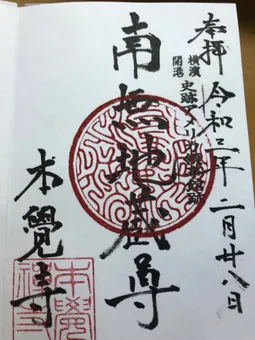 奉拝 令和三年二月廿八日
横濱
開港
史跡アメリカ領事館跡
南無地蔵尊
本覺寺